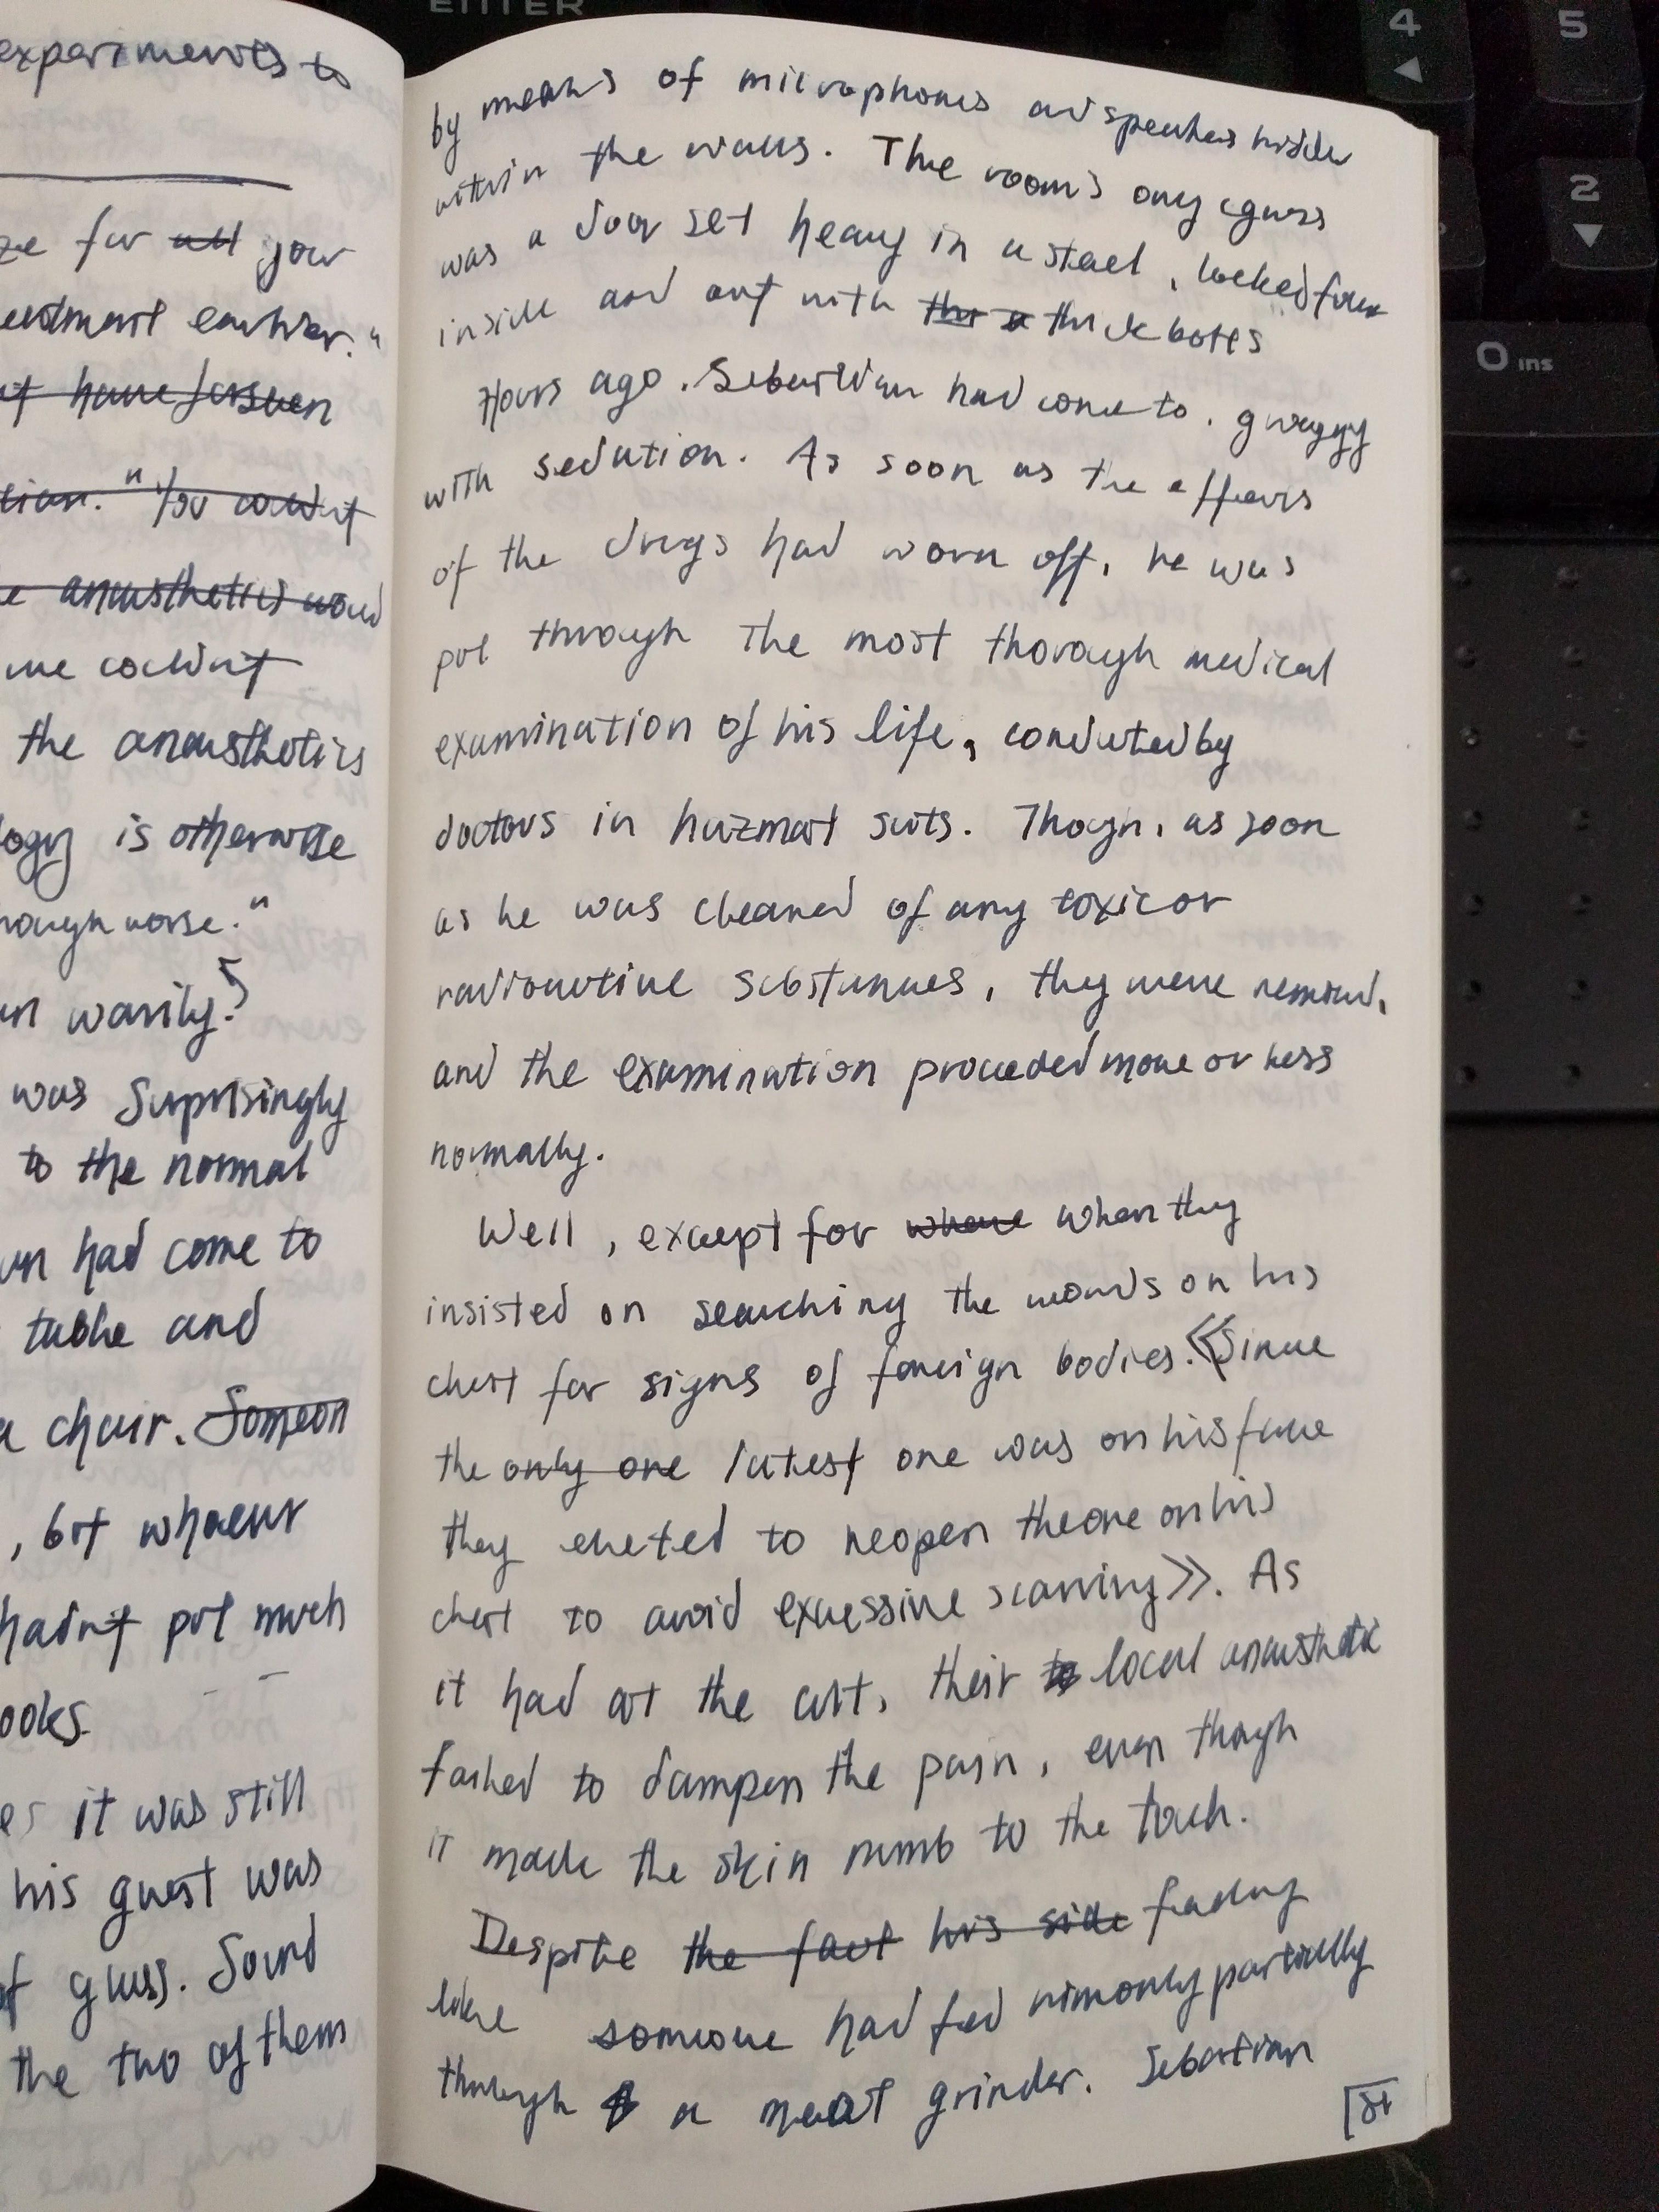 ENTER
4
5
2
0 ins
experiments to
ze for all your
earlier."
have forseen
"You couldnt
anaesthetics would
we couldnt
the anaesthetics
logy is otherwise
worse."
warily?
was surprisingly
to the normal
had come to
table and
a chair. Someon
, but
hadn't put much
ooks.
es it was still
his guest was
of glass. Sound
the two of them
by means of microphones and speakers hidden
within the walls. The room's only egress
was a door set heavy in a steel, locked from
inside and out with thick bolts
Hours ago, Sebastian had come to, groggy
with sedation. As soon as the effects
of the drugs had worn off, he was
put through the most thorough medical
examination of his life, conducted by
doctors in hazmat suits. Though, as soon
as he was cleared of any toxic or
radioactive substances, they were removed,
and the examination proceeded more or less
normally.
Well, except for where when they
insisted on searching the wounds on his
chest for signs of foreign bodies. <<Since
the only one latest one was on his face
they elected to reopen the one on his
chest to avoid excessive scarring>>. As
it had at the cult, their local anaesthetic
failed to dampen the pain, even though
it made the skin numb to the touch.
Despite the fact his side feeling
like someone had fed him only partially
through a meat grinder. Sebastian